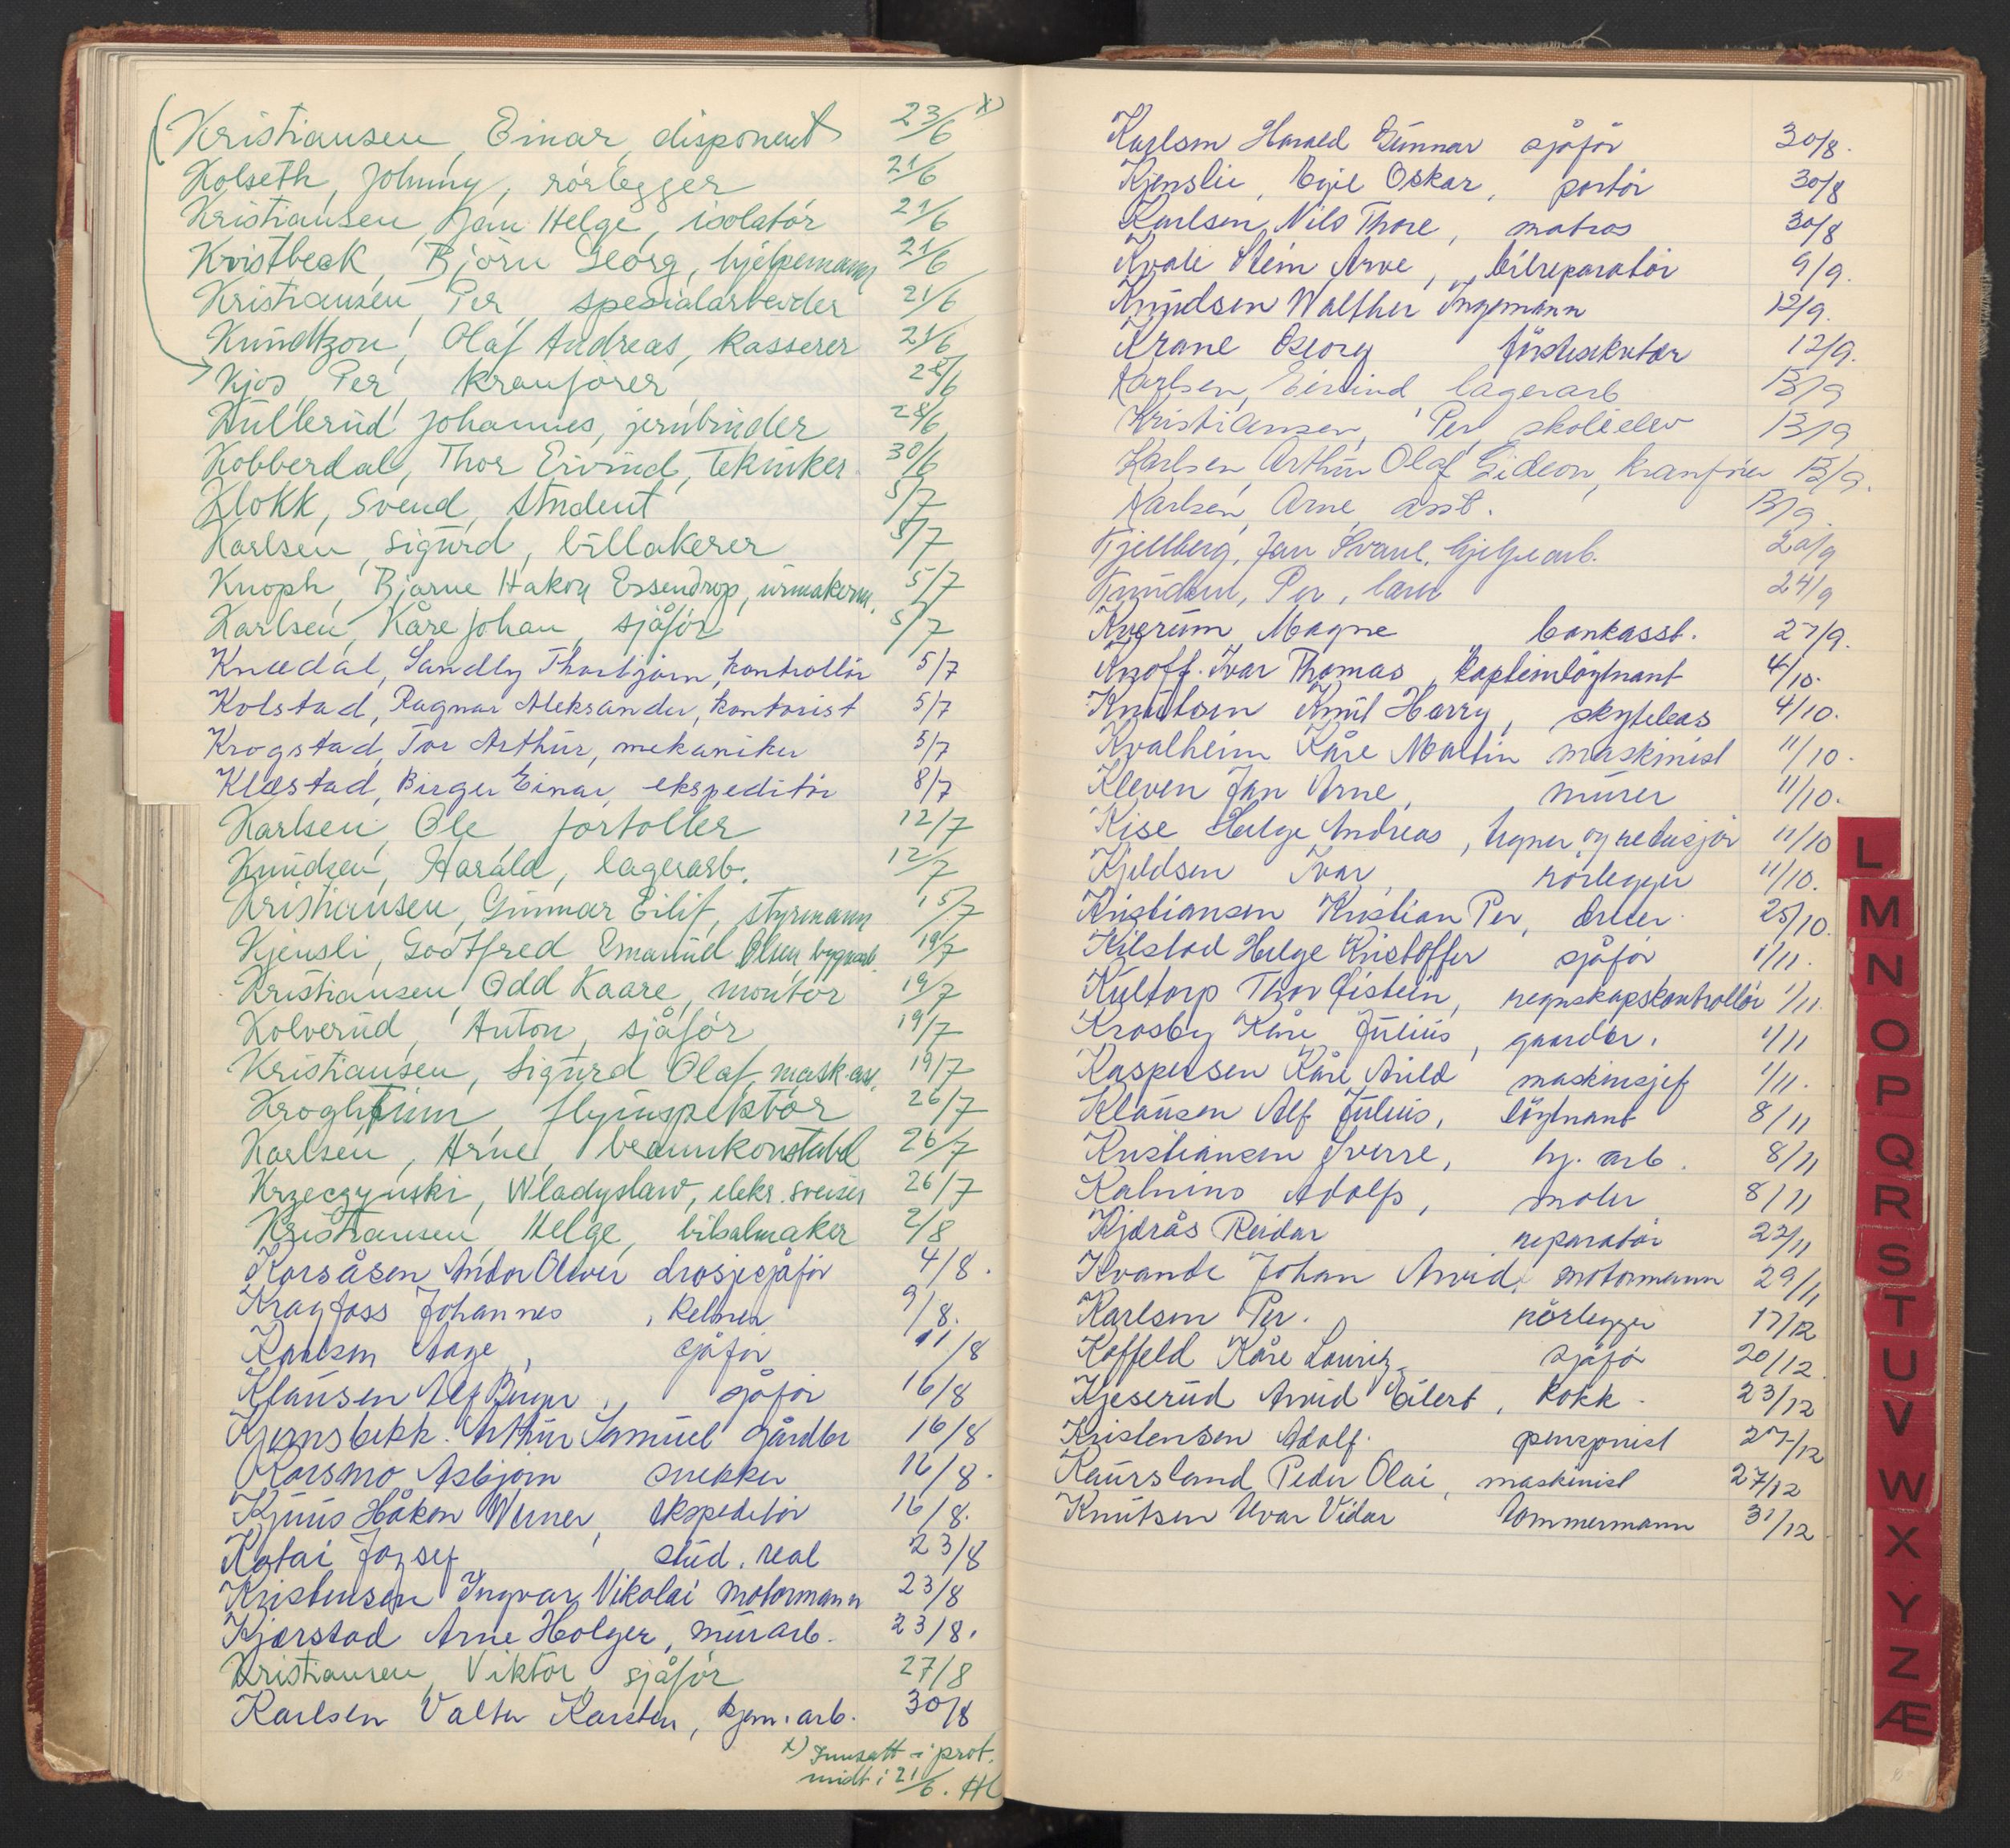 Kristiansen, Einar, disponent 23/6 x)
Kolseth, Johnny, rørlegger 21/6
Kristiansen, Jan Helge, isolatör 21/6
Kvistbeck, Björn Georg, hjelpemann 21/6
Kristiansen, Per, spesialarbeider 21/6
Kundtzon, Olaf Andreas, kasserer 21/6
Kjos, Per, kranförer
Hullerud Johannes, jernbinder 28/6
Kobberdal, Thor Eivind, tekniker 30/6
Klokk, Svend, student 5/7
Karlsen, Sigurd, billakerer 5/7
Knoph, Bjarne Hakon Essendrop, urmakerm. 5/7
Karlsen, Kåre Johan, sjåför 5/7
Knædal, Sandly Thorbjörn, kontrollör 5/7
Kolstad, Ragnar Aleksander, kontorist 5/7
Krogstad, Tor Arthur, mekaniker 5/7
Klæstad, Birger Einar, ekspeditör 8/7
Karlsen, Ole, fortoller 12/7
Knudsen, Harald, lagerarb. 12/7
Kristiansen, Gunnar Eilif, styrmann 15/7
Kjensli, Godtfred Emanuel Olsen, bygnarb. 19/7
Kristiansen Odd Kaare, montör 19/7
Kolverud, Anton, sjåför 19/7
Kristiansen, Sigurd Olaf, mask.ass. 19/7
Krogh, Finn, flyinspektör 26/7
Karlsen, Arne, brannkonstabel 26/7
Krzeczynski, Wladyslaw, elekr. sveiser 26/7
Kristiansen, Helge, bilsalmaker 2/8
Korsåsen Andor Oliver drosjesjåför 4/8.
Kragfoss Johannes, kelner 9/8.
Karlsen Aage, sjåför 11/8
Klausen Alf Birger, sjåför 16/8
Kjernsbekk. Arthur Samuel gårdbr 16/8
Korsmo Asbjørn snekker 16/8.
Kjuus Håkon Werner, ekspeditör 16/8.
Katai Jozsef stud. real 23/8
Kristensen Ingvar Nikolai motormann 23/8
Kjærstad Arne Holger, murarb. 23/8.
Kristiansen, Viktor, sjåför 27/8
Karlsen Valter Karsten, kjem. arb. 30/8
x) Innsatt i prot.
midt i 21/6. HC
Karlsen Harald Gunnar sjåför 30/8.
Kjenslie, Egil Oskar, portör 30/8
Karlsen, Nils Thore, matros 30/8
Kvale Stein Arve, bilreparatör 9/9.
Knudsen Walther Ingemann 12/9.
Krane Georg förstesekretær 12/9.
Karlsen, Eivind lagerarb 13/9
Kristiansen, Per, skoleelev 13/9
Karlsen, Arthur Olaf Gideon, kranförer 13/9.
Karlsen, Arne asst. 13/9
Kjellberg, Jan Svane, hjelpearb. 20/9
Knudsen, Per, 24/9
Kverum Magne bankasst. 27/9.
Knoff. Ivar Thomas, kapteinlöytnant 4/10.
Knutsen Knut Harry, skytebas 4/10.
Kvalheim Kåre Martin maskinist 11/10.
Kleven Jan Arne, murer 11/10.
Kise Helge Andreas, tegner og redusjör 11/10
Kjeldsen Ivar, rörlegger 11/10.
Kristiansen Kristian Per, dreier. 25/10.
Kilstad Helge Kristoffer sjåför 1/11.
Kultorp Thor Øistein, regnskapskontrollör 1/11.
Krosby Kåre Julius, gaardbr. 1/11
Kaspersen Kåre Arild maskinsjef 1/11.
Klausen Alf Julius, löytnant 8/11
Kristiansen Sverre, hj. arb. 8/11
Kalnins Adolfs, maler 8/11
Kjærås Reidar reparatör 22/11
Kvande Johan Arvid, motormann 29/11
Karlsen Per. rörlegger 17/12
Koffeld Kåre Lauritz sjåför 20/12
Kjeserud Arvid Eilert, kokk. 23/12
Kristensen Adolf. pensjonist 27/12
Kaursland Peder Olai, maskinist 27/12
Knutsen Uvar Vidar tömmermann 31/12
L
M
N
O
P
Q
R
S
T
U
V
W
X
Y
Z
Æ